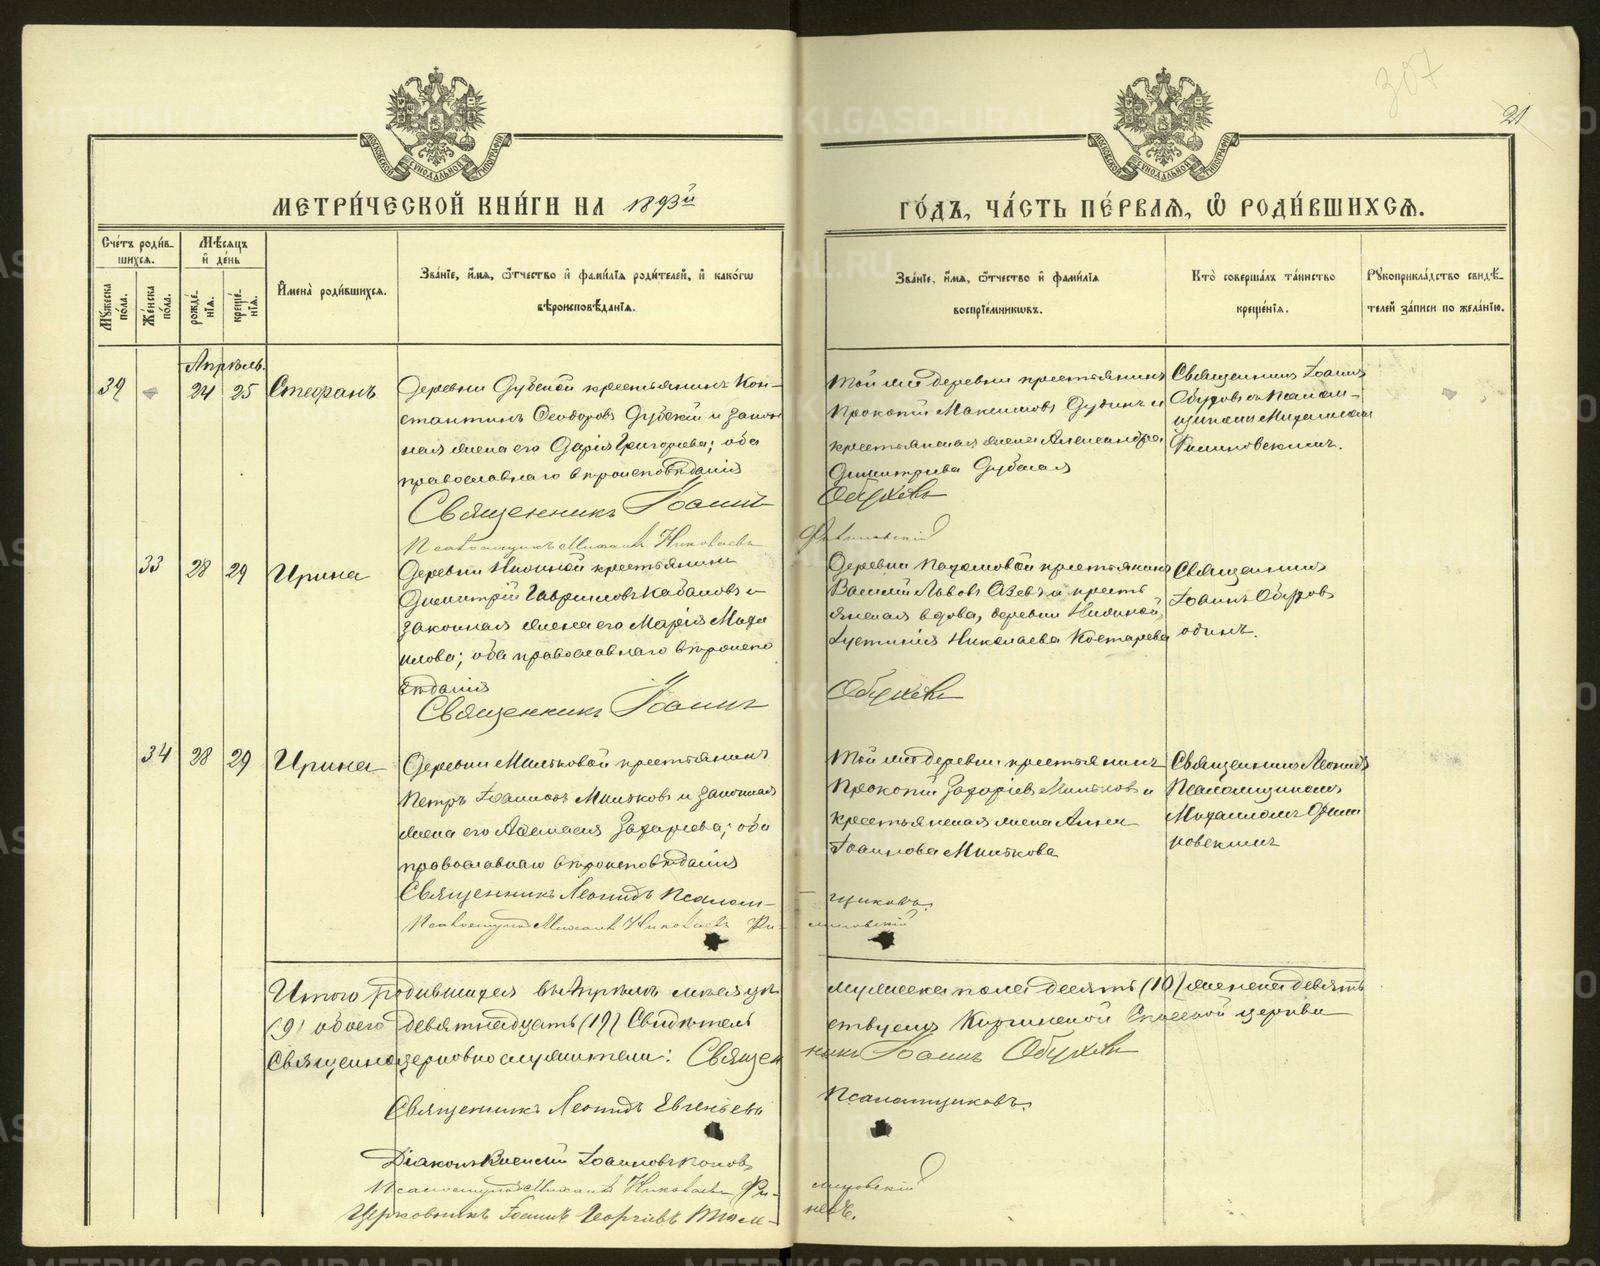 307
21
МОСКОВСКОЙ СѴНОДАЛЬНОЙ ТИПОГРАФІИ
МОСКОВСКОЙ СѴНОДАЛЬНОЙ ТИПОГРАФІИ
МЕТРИ́ЧЕСКОЙ КНИ́ГИ НА 1893й
ГО́ДЪ, ЧА́СТЬ ПЕ́РВАѦ, Ѡ РОДИ́ВШИХСѦ.
Сче́тъ роди́в-
шихсѧ.
Мꙋжеска по́ла.
Же́нска по́ла.
Мѣсѧцъ
и де́нь
рожде́-
нїѧ.
креще́-
нїѧ.
Имена̀ роди́вшихсѧ.
Зва́нїе, и́мѧ, ѻ́тчество и фами́лїѧ роди́телей, и како́гѡ
вѣроисповѣ́данїѧ.
Зва́нїе, и́мѧ, ѻ́тчество и фами́лїѧ
воспрїе́мникѡвъ.
Кто̀ соверша́лъ та́инство
креще́нїѧ.
Рꙋкоприкла́дство свидѣ́-
телей за́писи по жела́нїю.
Апрѣль.
39 - 24 25 Стефанъ
Деревни Дубской крестьянинъ Кон-
стантинъ Ѳеодоровъ Дубскій и закон
ная жена его Дарія Григорьева; оба
православнаго вѣроисповѣданія
Священникъ Іоаннъ
Псаломщикъ Михаилъ Николаевъ
Той же деревни крестьянинъ
Прокопій Максимовъ Дубинъ и
крестьянская жена Александра
Димитріева Дубская
Обуховъ
Филиповскій
Священникъ Іоаннъ
Обуховъ съ Псалом-
щикомъ Михаиломъ
Филиповскимъ.
33 28 29 Ирина
Деревни крестьянинъ
Димитрій Гавриловъ Кабаковъ и
законная жена его Марія Миха
илова; оба православнаго вѣроиспо
вѣданія
Священникъ Іоаннъ
Деревни крестьянинъ
Василій Львовъ и кресть
янская вдова, деревни
Іустинія Николаева Костарева
Обуховъ
Священникъ
Іоаннъ Обуховъ
одинъ.
34 28 29 Ирина
Деревни Милюковой крестьянинъ
Петръ Іоанновъ Милюковъ и законная
жена его Захарьева; оба
православнаго вѣроисповѣданія
Священникъ Леонидъ Псалом-
Псаломщикъ Михаилъ Николаевъ Фи-
Той же деревни крестьянинъ
Прокопій Захаріевъ Милюковъ и
крестьянская жена Анна
Іоаннова Милюкова
щиковъ.
липовскій
Священникъ Леонидъ
Псаломщиковъ
Михаиломъ Фили
повскимъ
Итого родившихся въ Апрѣлѣ мѣсяцѣ
мужеска пола десять (10) женска девять
(9) обоего девятнадцать (19) Свидѣтель
ствуемъ Киргинской Спасской церкви
Священноцерковнослужители: Священ
никъ Іоаннъ Обуховъ
Священникъ Леонидъ Евгеньевъ
Псаломщиковъ.
Діаконъ Василій Іоанновъ Поповъ
Псаломщикъ Михаилъ Николаевъ Фи-
липовскій
Церковникъ Іоаннъ Георгіевъ